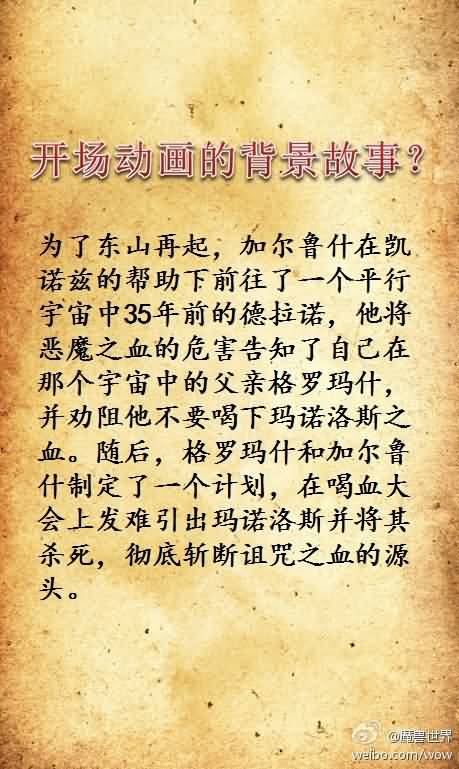 开场动画的背景故事？
为了东山再起，加尔鲁什在凯
诺兹的帮助下前往了一个平行
宇宙中35年前的德拉诺，他将
恶魔之血的危害告知了自己在
那个宇宙中的父亲格罗玛什，
并劝阻他不要喝下玛诺洛斯之
血。随后，格罗玛什和加尔鲁
什制定了一个计划，在喝血大
会上发难引出玛诺洛斯并将其
杀死，彻底斩断诅咒之血的源
头。
@魔兽世界
weibo.com/wow